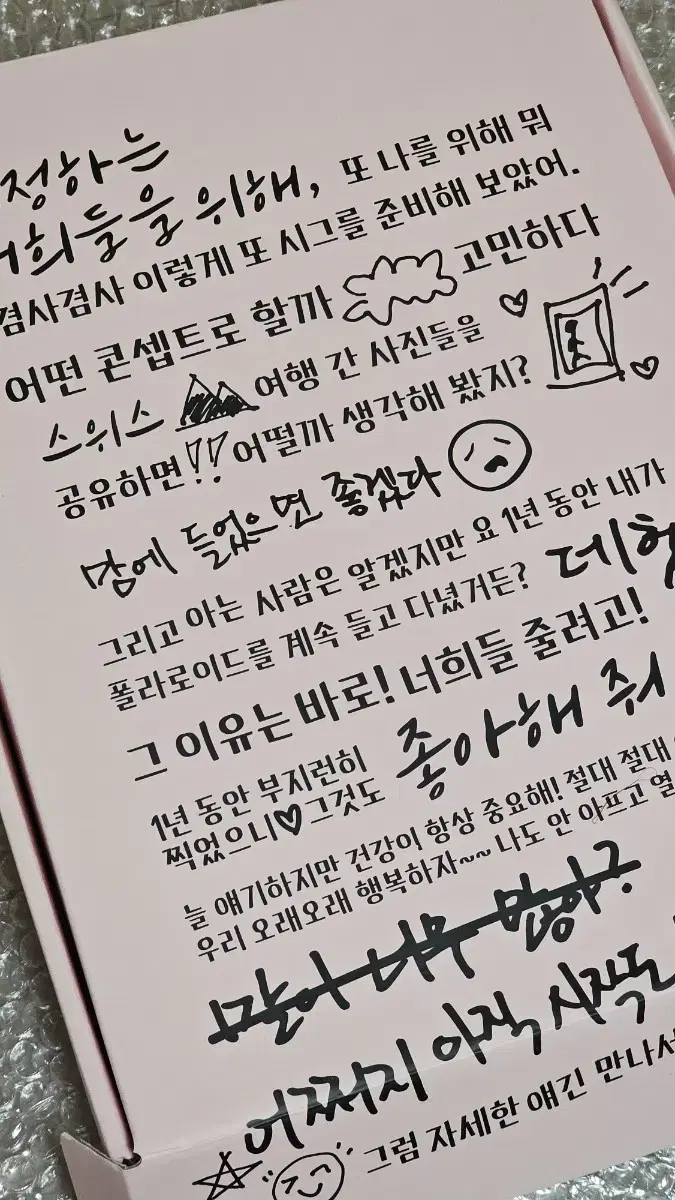 정하는
너희들을 위해, 또 나를 위해 뭐
겸사겸사 이렇게 또 시그를 준비해 보았어.
어떤 콘셉트로 할까 고민하다
스위스 여행 간 사진들을
공유하면!! 어떨까 생각해 봤지?
맘에 들었으면 좋겠다
그리고 아는 사람은 알겠지만 요 1년 동안 내가
폴라로이드를 계속 들고 다녔거든? 데헷
그 이유는 바로! 너희들 줄려고!
1년 동안 부지런히
찍었으니♥그것도 좋아해 줘
늘 얘기하지만 건강이 항상 중요해! 절대 절대
우리 오래오래 행복하자~~ 나도 안 아프고 열
말이 너무 많아?
어쩌지 아직 시작도
그럼 자세한 얘긴 만나서